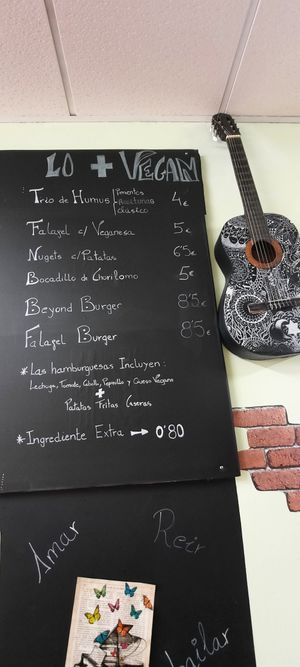 LO + VEGAN
Trio de Humus Pimientos 4€
Aceitunas
clásico
Falafel c/ Veganesa 5€
Nugets c/Patatas 6'5€
Bocadillo de Chorilomo 5€
Beyond Burger 8'5€
Falafel Burger 8'5€
*Las hamburguesas Incluyen:
Lechuga, Tomate, Cebolla, Pepinillo y Queso Vegano
+
Patatas Fritas Caseras
*Ingrediente Extra → 0'80
Amar
Reir